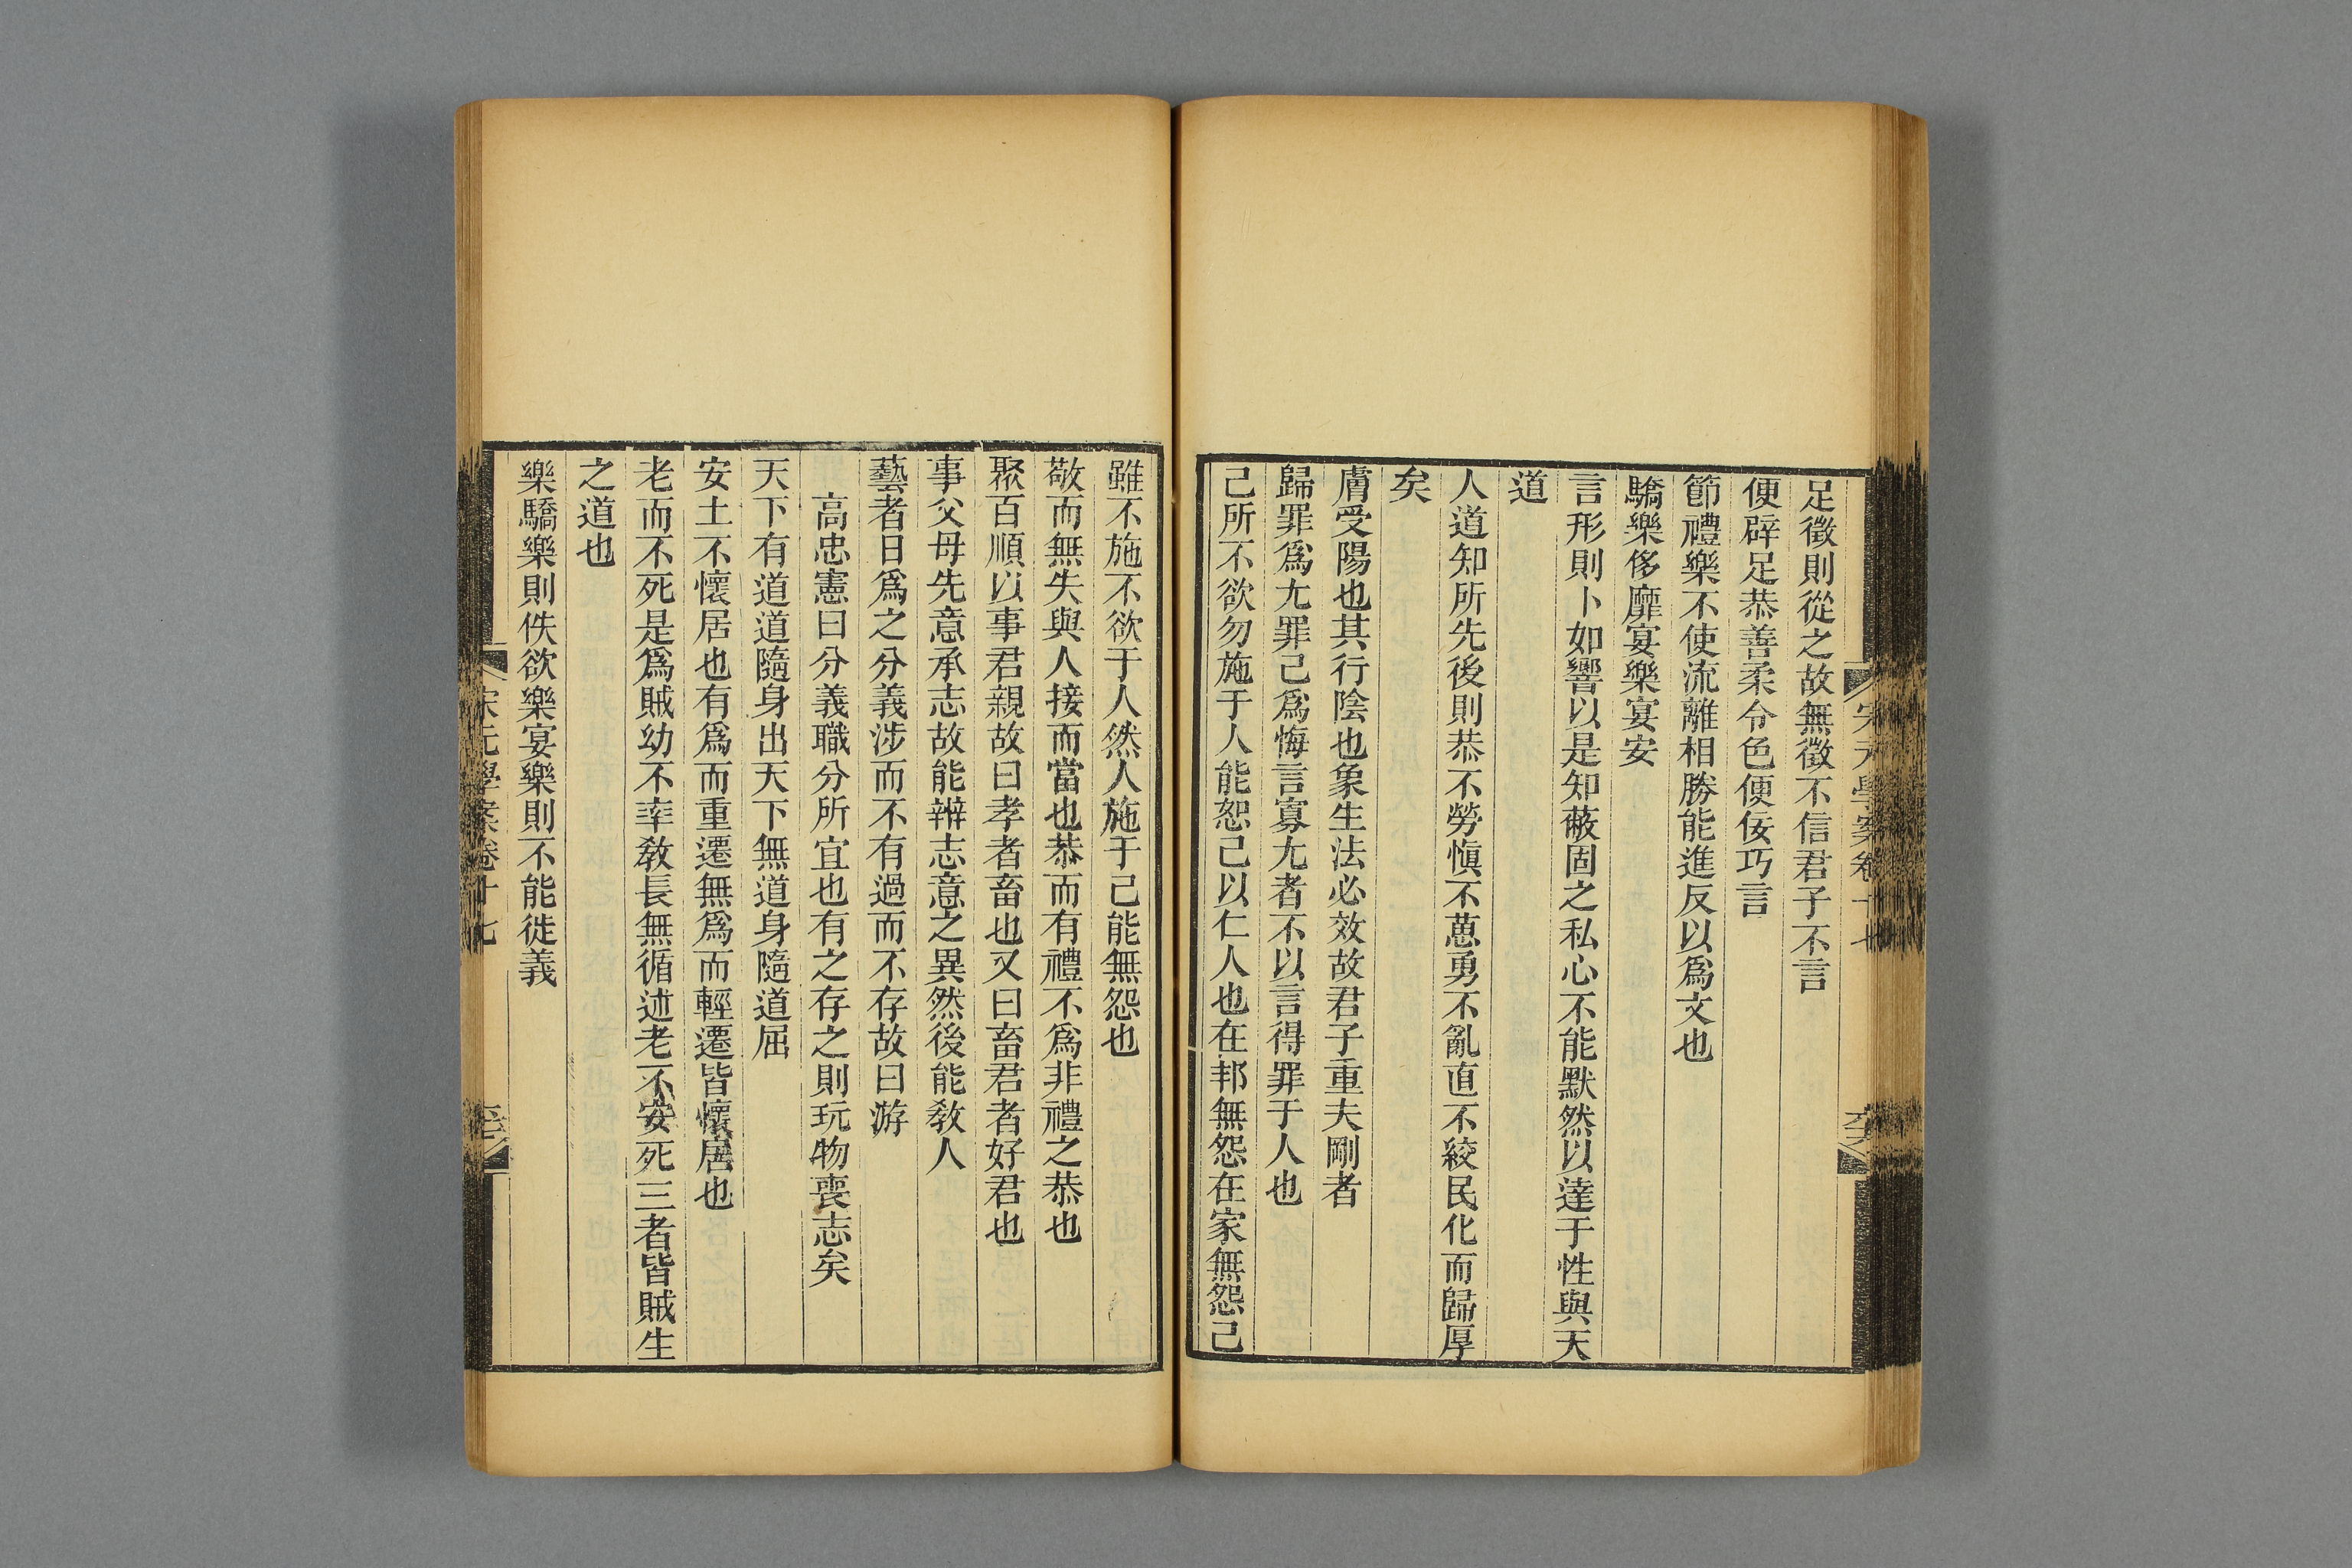 足徵則從之故無徵不信君子不言
便辟足恭善柔令色便佞巧言
節禮樂不使流離相勝能進反以爲文也
驕樂侈靡宴樂宴安
言形則卜如響以是知蔽固之私心不能默然以達于性與天
道
人道知所先後則恭不勞愼不葸勇不亂直不絞民化而歸厚
矣
膚受陽也其行陰也象生法必效故君子重夫剛者
歸罪爲尤罪己爲悔言寡尤者不以言得罪于人也
己所不欲勿施于人能恕己以仁人也在邦無怨在家無怨己
雖不施不欲于人然人施于己能無怨也
敬而無失與人接而當也恭而有禮不爲非禮之恭也
聚百順以事君親故曰孝者畜也又曰畜君者好君也
事父母先意承志故能辨志意之異然後能敎人
藝者日爲之分義涉而不有過而不存故曰游
高忠憲曰分義職分所宜也有之存之則玩物喪志矣
天下有道道隨身出天下無道身隨道屈
安土不懷居也有爲而重遷無爲而輕遷皆懷居也
老而不死是爲賊幼不率敎長無循述老不安死三者皆賊生
之道也
樂驕樂則佚欲樂宴樂則不能徙義
宋元學案卷十七